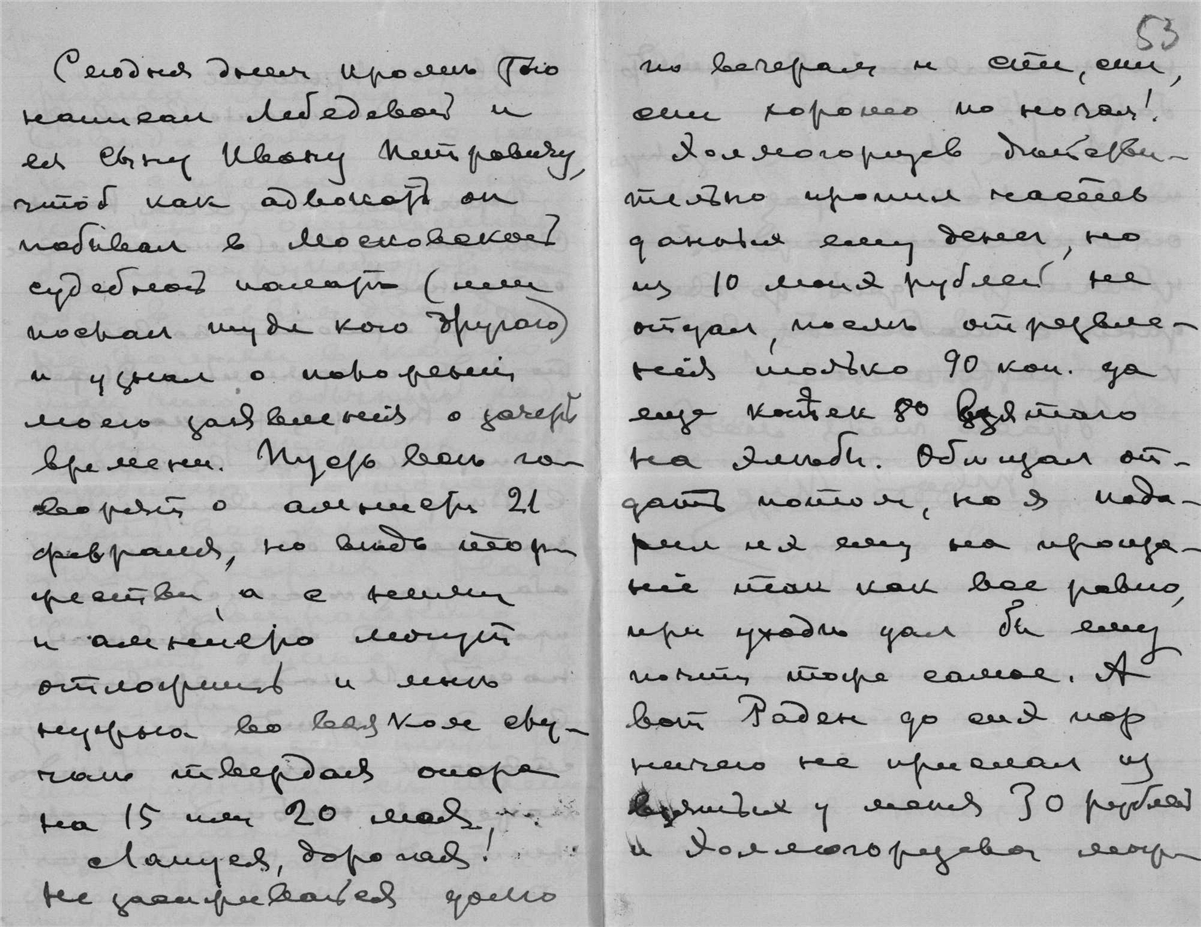 Сегодня днем кромѣ того
написал Лебедевой и
ея сыну Ивану Петровичу,
чтоб как адвокатъ он
побывал в Московской
судебной палатѣ (или
послал туда кого другого)
и узнал о положеніи
моего заявленія о зачетѣ
времени. Пусть весь го-
ворят о амнистіи 21
февраля, но вѣдь тор-
жества, а с ними
и амнистію могут
отложить и мнѣ
нужна во всяком слу-
чаѣ твердая опора
на 15 или 20 мая!
Лапуся, дорогая!
не засиживайся долго
53
по вечерам и спи, спи,
спи хорошо по ночам!
Холмогорцев дѣйстви-
тельно пропил насчет
данных ему денег, но
из 10 моих рублей не
отдал, послѣ отрезвле-
нія только 90 коп. да
еще копѣек 80 взятаго
на хлѣбы. Обѣщал от-
дать потом, но я пода-
рил их ему на проща-
ніе так как все равно,
при уходѣ дал бы ему
почти тоже самое. А
вот Раден до сих пор
ничего не прислал из
взятых у меня 30 рублей
и Холмогорцева